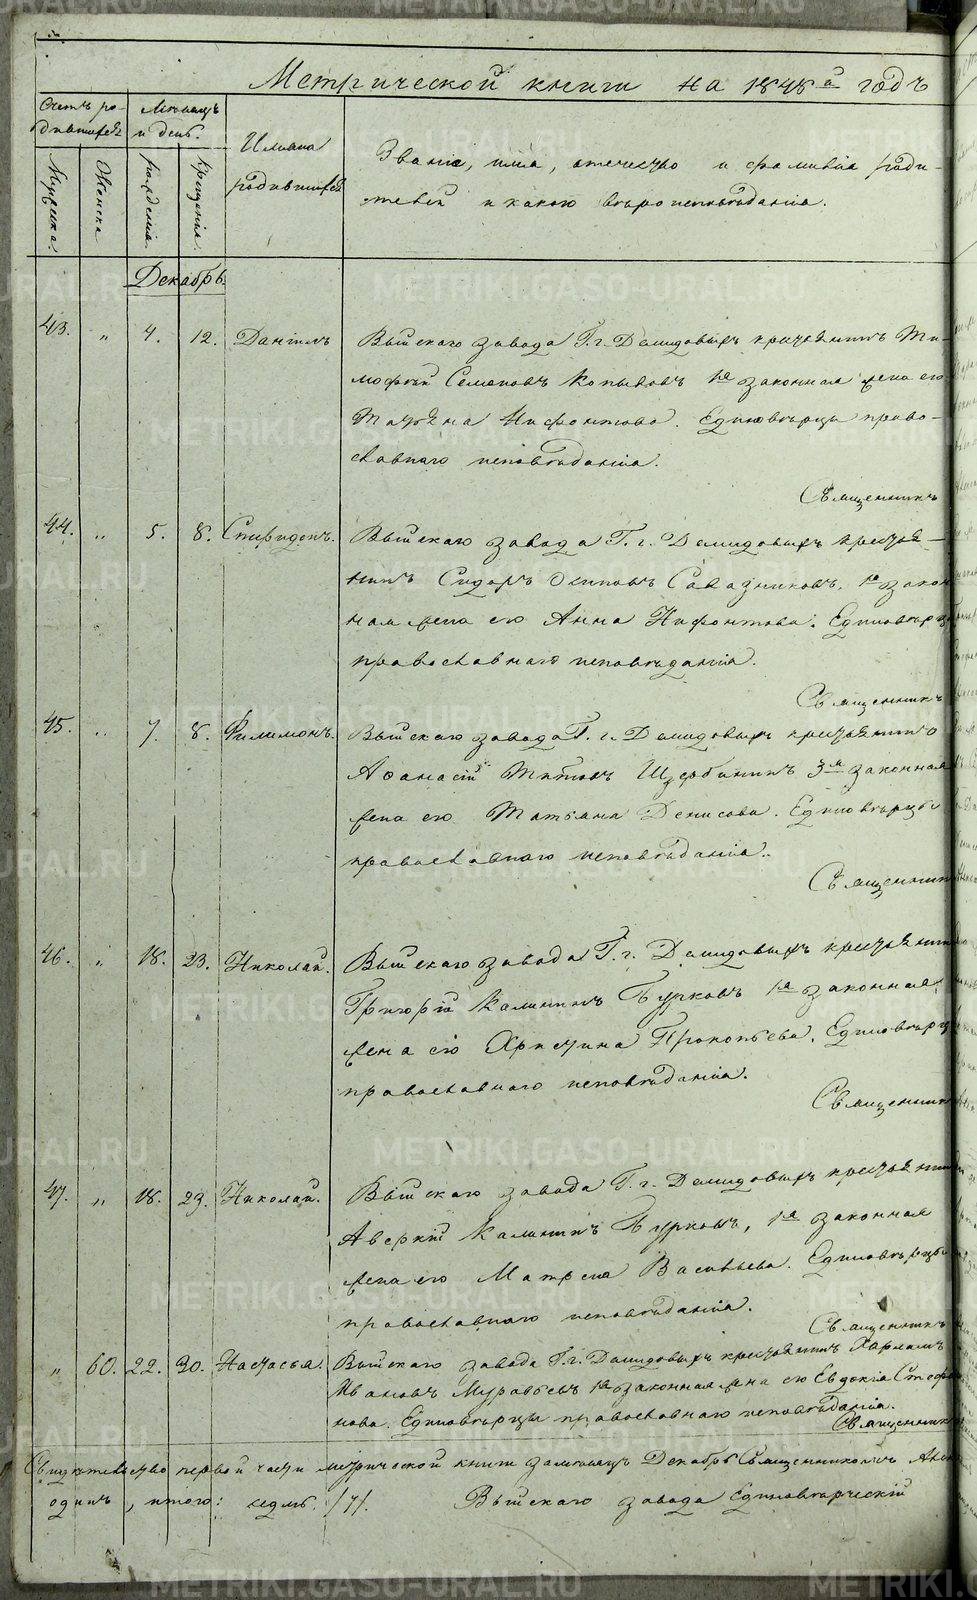 Метрической книги на 1848й годъ
Счетъ ро-
дившихся
Мѣсяцъ
и день.
Имена
родившихся
Званіе, имя, отечество и фамилія роди-
телей и какого вѣроисповѣданія.
Мужеска.
Женска
рожденія.
крещенія.
Декабрь
43. " 4. 12. Даніилъ Выйскаго завода Г.г. Демидовыхъ крестьянинъ Ти-
мофѣй Семеновъ Копыловъ 1я законная жена его
Татьяна Нифонтова. Единовѣрцы право-
славнаго исповѣданія.
Священникъ
44. " 5. 8. Спиридонъ. Выйскаго завода Г.г. Демидовыхъ крестья-
нинъ Сидоръ Осиповъ 1я закон
ная жена его Анна Нифонтова. Единовѣрцы
православнаго исповѣданія.
Священникъ
45. " 7. 8. Филимонъ. Выйскаго завода Г.г. Демидовыхъ крестьянинъ
Афанасій Титовъ Щербининъ 3я законная
жена его Татьяна Денисова. Единовѣрцы
православнаго исповѣданія.
Священник
46. " 18. 23. Николай. Выйскаго завода Г.г. Демидовыхъ крестьянин
Григорій Калининъ Бурковъ 1я законная
жена его Христина Прокопьева. Единовѣрц
православнаго исповѣданія.
Священник
47. " 18. 23. Николай. Выйскаго завода Г.г. Демидовыхъ крестьянин
Аверкій Калининъ Бурковъ, 1я законная
жена его Матрена Васильева. Единовѣрцы
православнаго исповѣданія.
Священникъ
" 60. 22. 30. Настасья. Выйскаго завода Г.г. Демидовыхъ крестьянинъ Харламъ
Ивановъ Муравьевъ 1я законная жена его Евдокія Стефа
нова. Единовѣрцы православнаго исповѣданія.
Священник
первой части метрической книги за мѣсяцъ Декабрь Священникомъ
одинъ, итого: седмь /7/. Выйскаго завода Единовѣрческій
METRIKI.GASO-URAL.RU